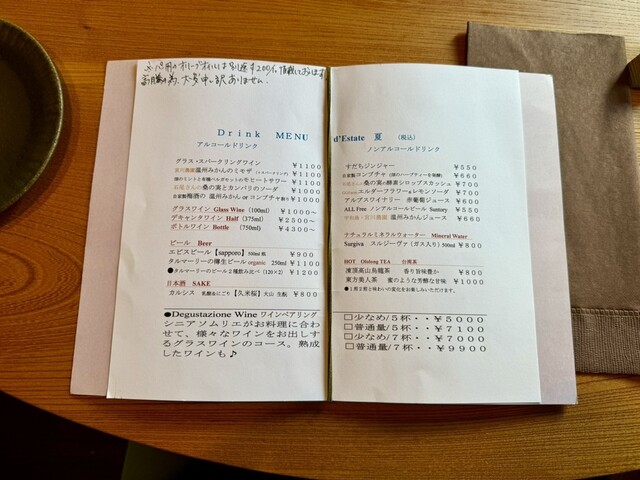 Drink MENU d'Estate 夏 (税込)
アルコールドリンク
グラス・スパークリングワイン ￥1100
温州みかんのミモザ ￥1100
￥1100
石尾さんの桑の実とカンパリのソーダ ￥1000
自家製梅酒の 温州みかん or コンブチャ割り ￥1000
グラスワイン Glass Wine (100ml) ￥1000～
デキャンタワイン Half (375ml) ￥2500～
ボトルワイン Bottle (750ml) ￥4300～
ビール Beer
エビスビール【sapporo】500ml 瓶 ￥900
タルマーリーの樽生ビール organic 250ml ￥1100
●タルマーリーのビール2種飲み比べ (120×2) ￥1200
日本酒 SAKE
カルシス 乳酸おにごり【久米桜】大山 生酛 ￥800
●Degustazione Wine ワインペアリング
シニアソムリエがお料理に合わ
せて、様々なワインをお出しす
るグラスワインのコース。熟成
したワインも♪
ノンアルコールドリンク
すだちジンジャー ￥550
自家製コンブチャ (種のハーブティーを発酵) ￥660
石尾さんの桑の実の酵素シロップスカッシュ ￥700
エルダーフラワー＆レモンソーダ ￥700
アルプスワイナリー 赤葡萄ジュース ￥660
ALL Free ノンアルコールビール Suntory ￥550
温州みかんジュース ￥660
ナチュラルミネラルウォーター Mineral Water
Surgiva スルジーヴァ (ガス入り) 500ml ￥800
HOT Oolong TEA 台湾茶
凍頂高山烏龍茶 香り旨味豊か ￥800
東方美人茶 蜜のような芳醇な甘味 ￥1000
●1煎2煎と味わいの変化をお楽しみいただけます。
□少なめ/5杯・・￥5000
□普通量/5杯・・￥7100
□少なめ/7杯・・￥7000
□普通量/7杯・・￥9900